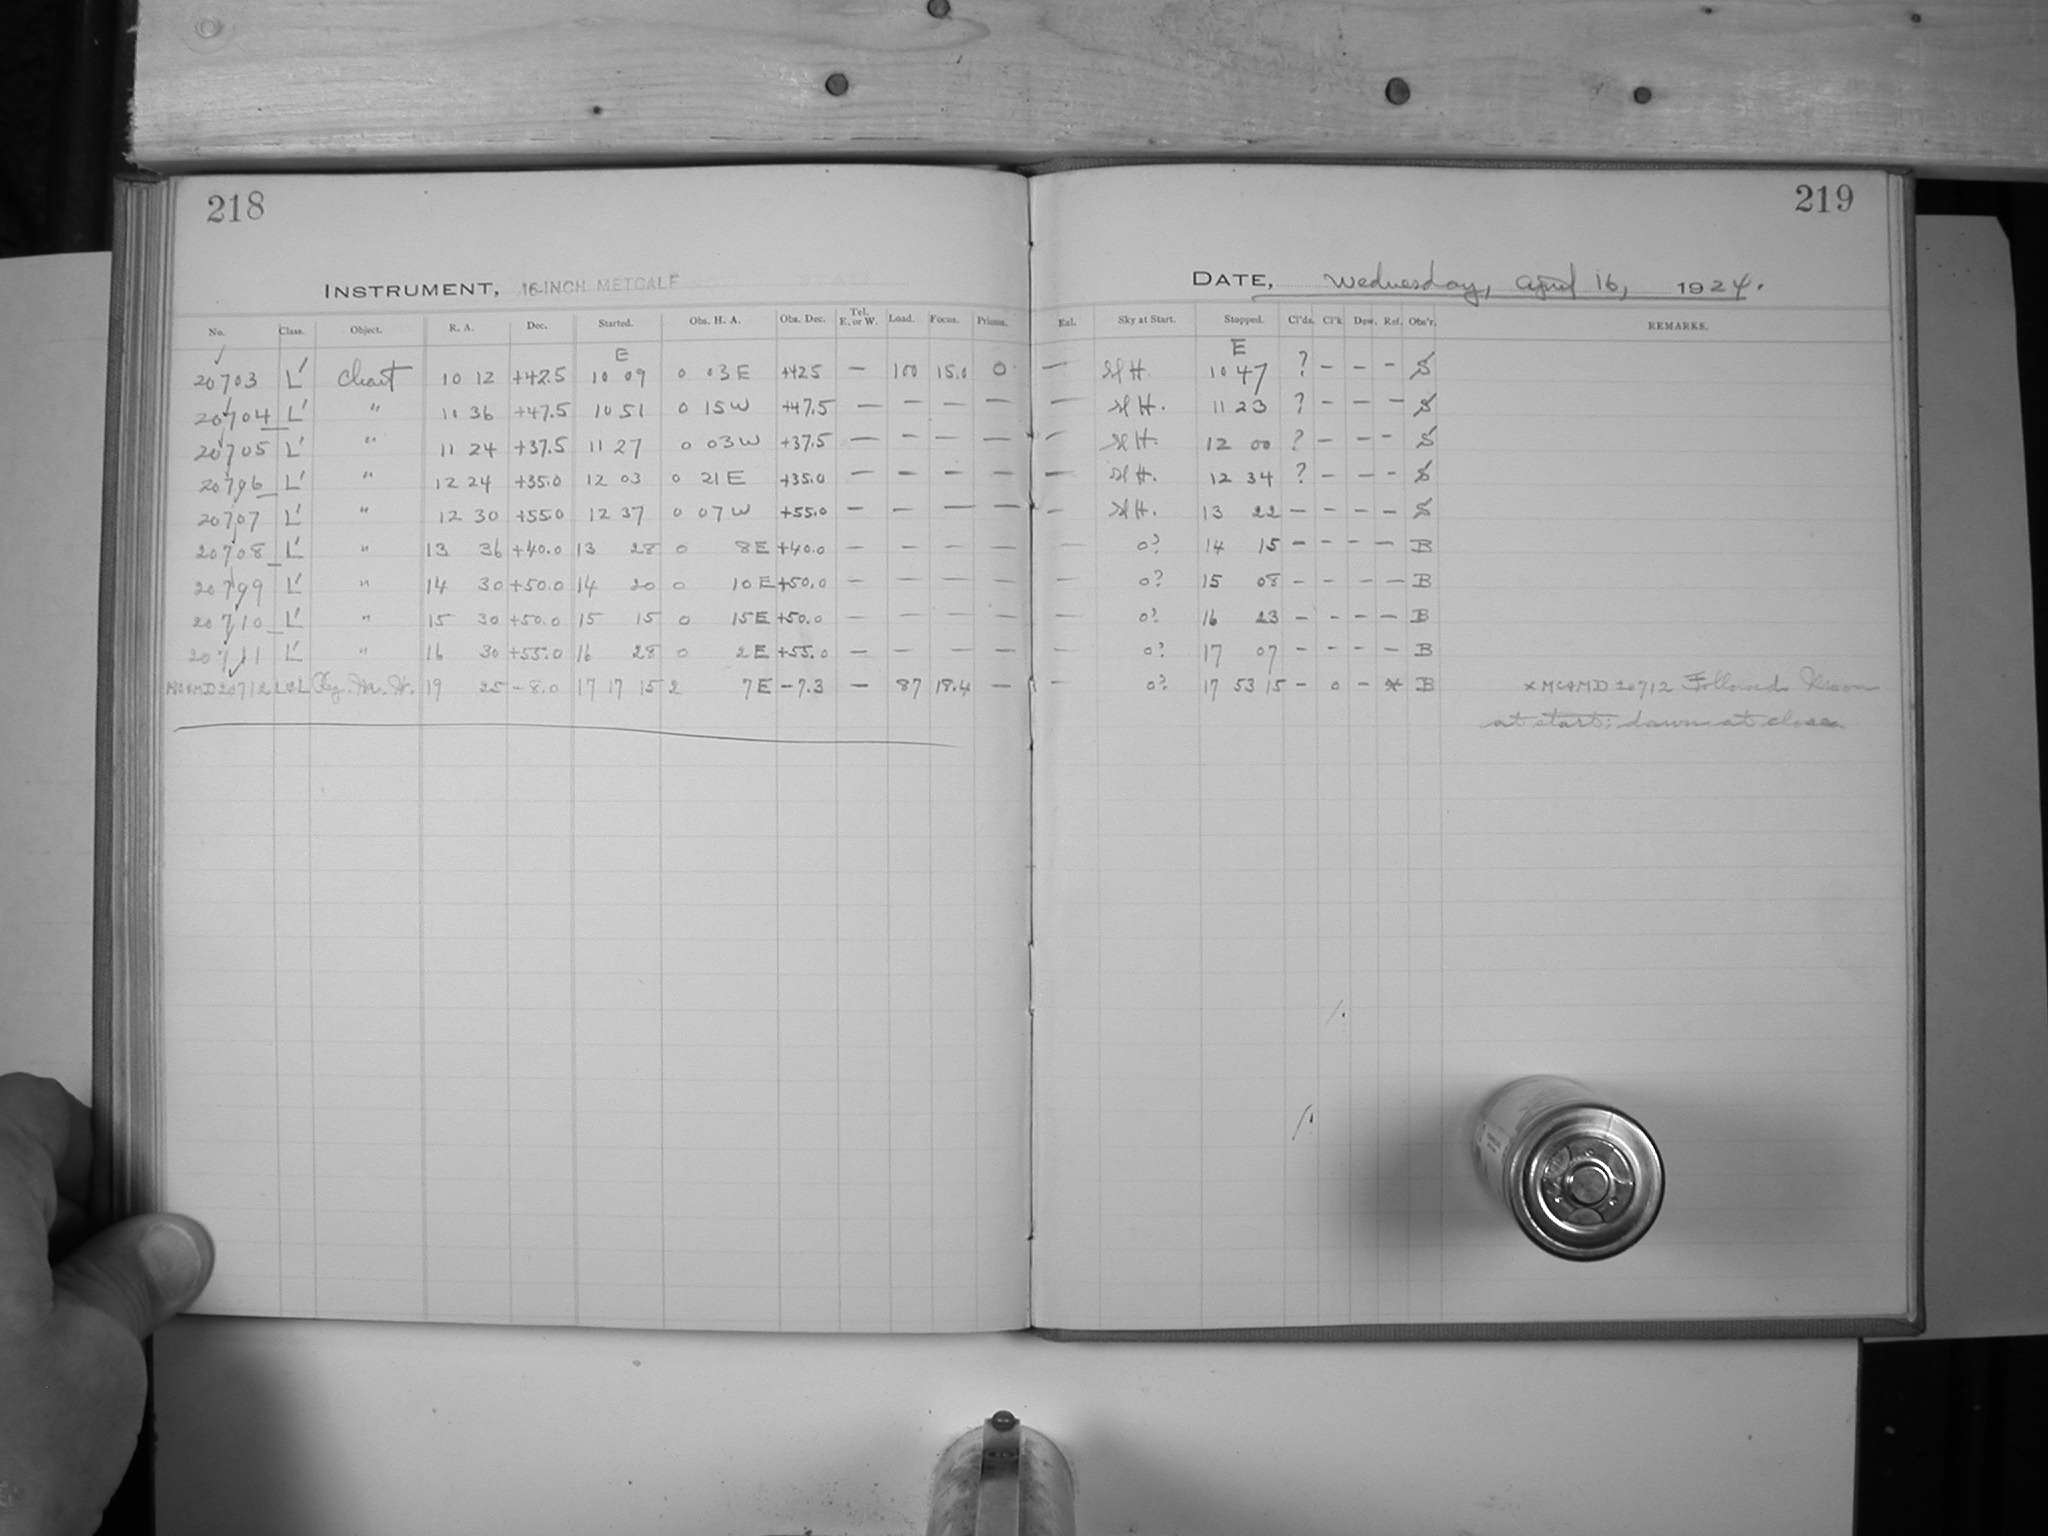 218
219
INSTRUMENT, 16-INCH METCALF
DATE, Wednesday, April 16, 1924.
No. Class. Object. R. A. Dec. Started. Obs. H. A. Obs. Dec. Tel. E. or W. Load. Focus. Prisms. Eal. Sky at Start. Stopped. Cl'ds. Cl'k Dew. Ref. Obs'r. REMARKS.
E E
20703 L' Chart 10 12 +42.5 10 09 0 03 E +425 — 100 15.0 0 — H. 10 47 ? – – – S
20704 L' " 10 36 +47.5 10 51 0 15 W +47.5 — — — — — H. 11 23 ? – – – S
20705 L' " 11 24 +37.5 11 27 0 03 W +37.5 — — — — — H. 12 00 ? – – – S
20706 L' " 12 24 +35.0 12 03 0 21 E +35.0 — — — — — H. 12 34 ? – – – S
20707 L' " 12 30 +55.0 12 37 0 07 W +55.0 — — — — — H. 13 22 – – – – S
20708 L' " 13 36 +40.0 13 28 0 8 E +40.0 — — — — — 0? 14 15 – – – – B
20709 L' " 14 30 +50.0 14 20 0 10 E +50.0 — — — — — 0? 15 08 – – – – B
20710 L' " 15 30 +50.0 15 15 0 15 E +50.0 — — — — — 0? 16 23 – – – – B
20711 L' " 16 30 +55.0 16 28 0 2 E +55.0 — — — — — 0? 17 07 – – – – B
MC&MD20712 L&L 19 25 –8.0 17 17 15 2 7 E –7.3 — 87 18.4 — — 0? 17 53 15 – 0 – * B × MC&MD 20712 Followed. Moon
at start; dawn at close.